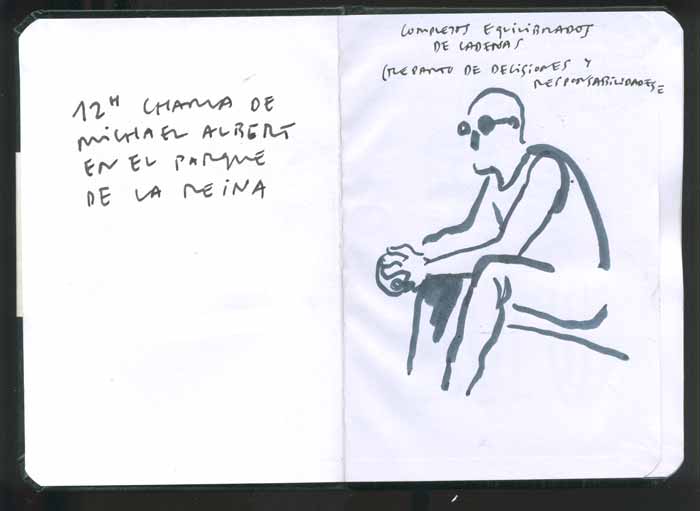 12H CHARLA DE
MICHAEL ALBERT
EN EL PARQUE
DE LA REINA
COMPLETOS EQUILIBRADOS
DE CADENAS
(REPARTO DE DECISIONES Y
RESPONSABILIDADES